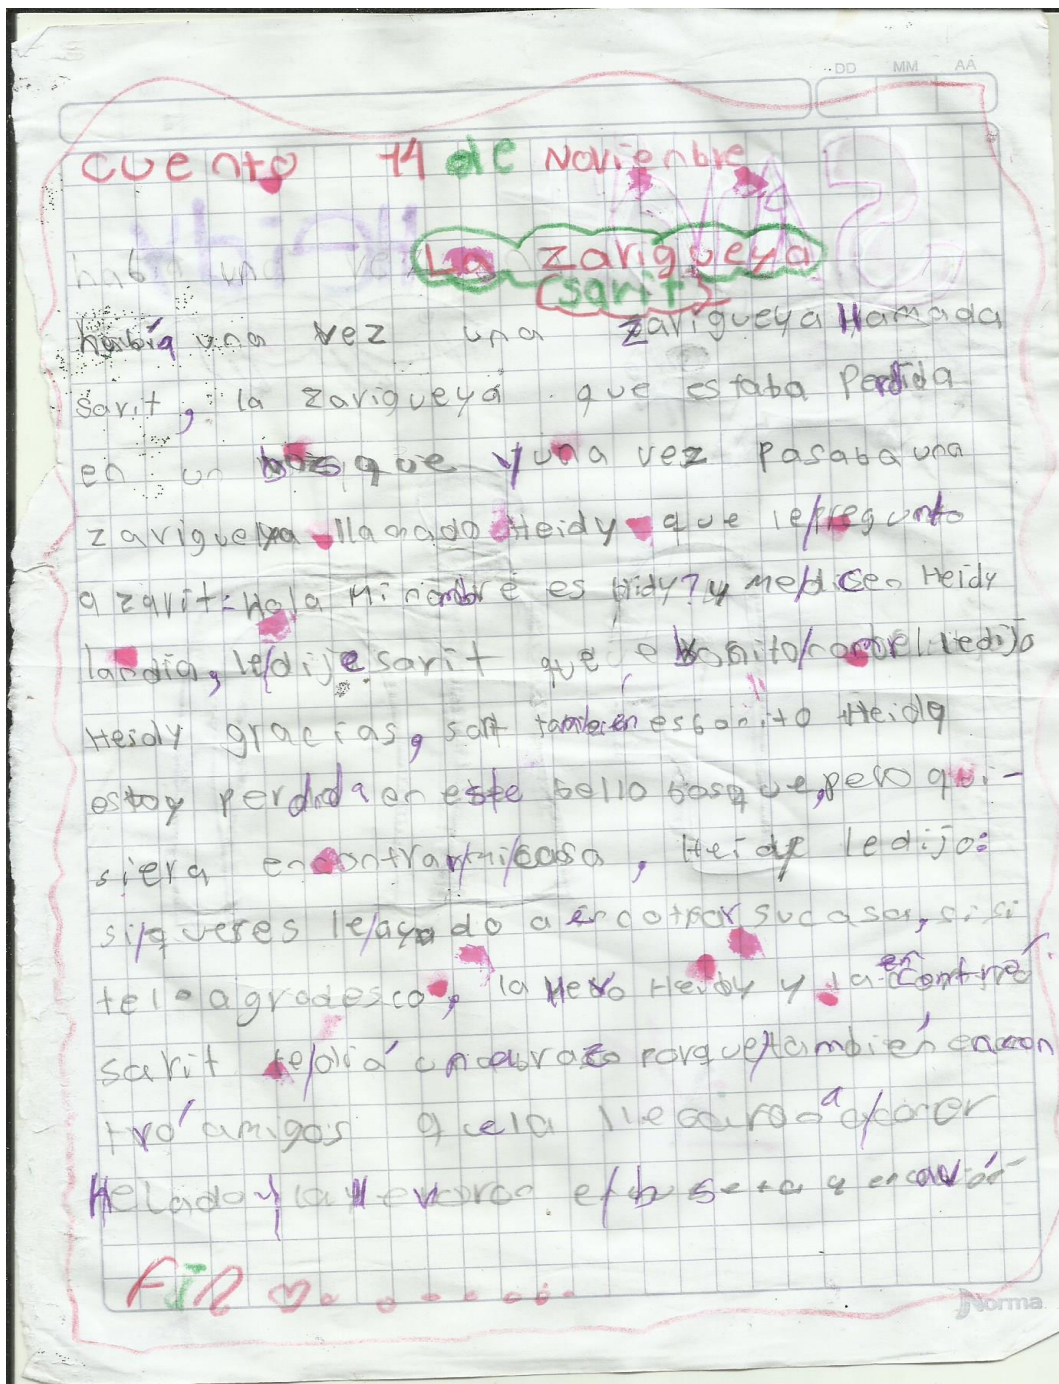 DD MM AA
cuento 14 de Noviembre
La zarigueya
(sarit)
había una vez una zarigueya llamada
sarit, la zarigueya que estaba Perdida
en un bosque y una vez pasaba una
zarigueya llamada Heidy que le pregunto
a zarit: Hola Mi nombre es Hidy? y me dicen Heidy
landia, le dije sarit que bonito le dijo
Heidy gracias, sarit también es bonito Heidy
estoy perdida en este bello bosque, pero qui-
siera encontrar mi casa, Heidy le dijo:
si queres le ayudo a encotrar su casa, si si
te lo agradesco, la llevo Heidy y la encontré
sarit le dio un abrazo porque también encon
tró amigos que la a comer
Helado y la en
Fin
Norma